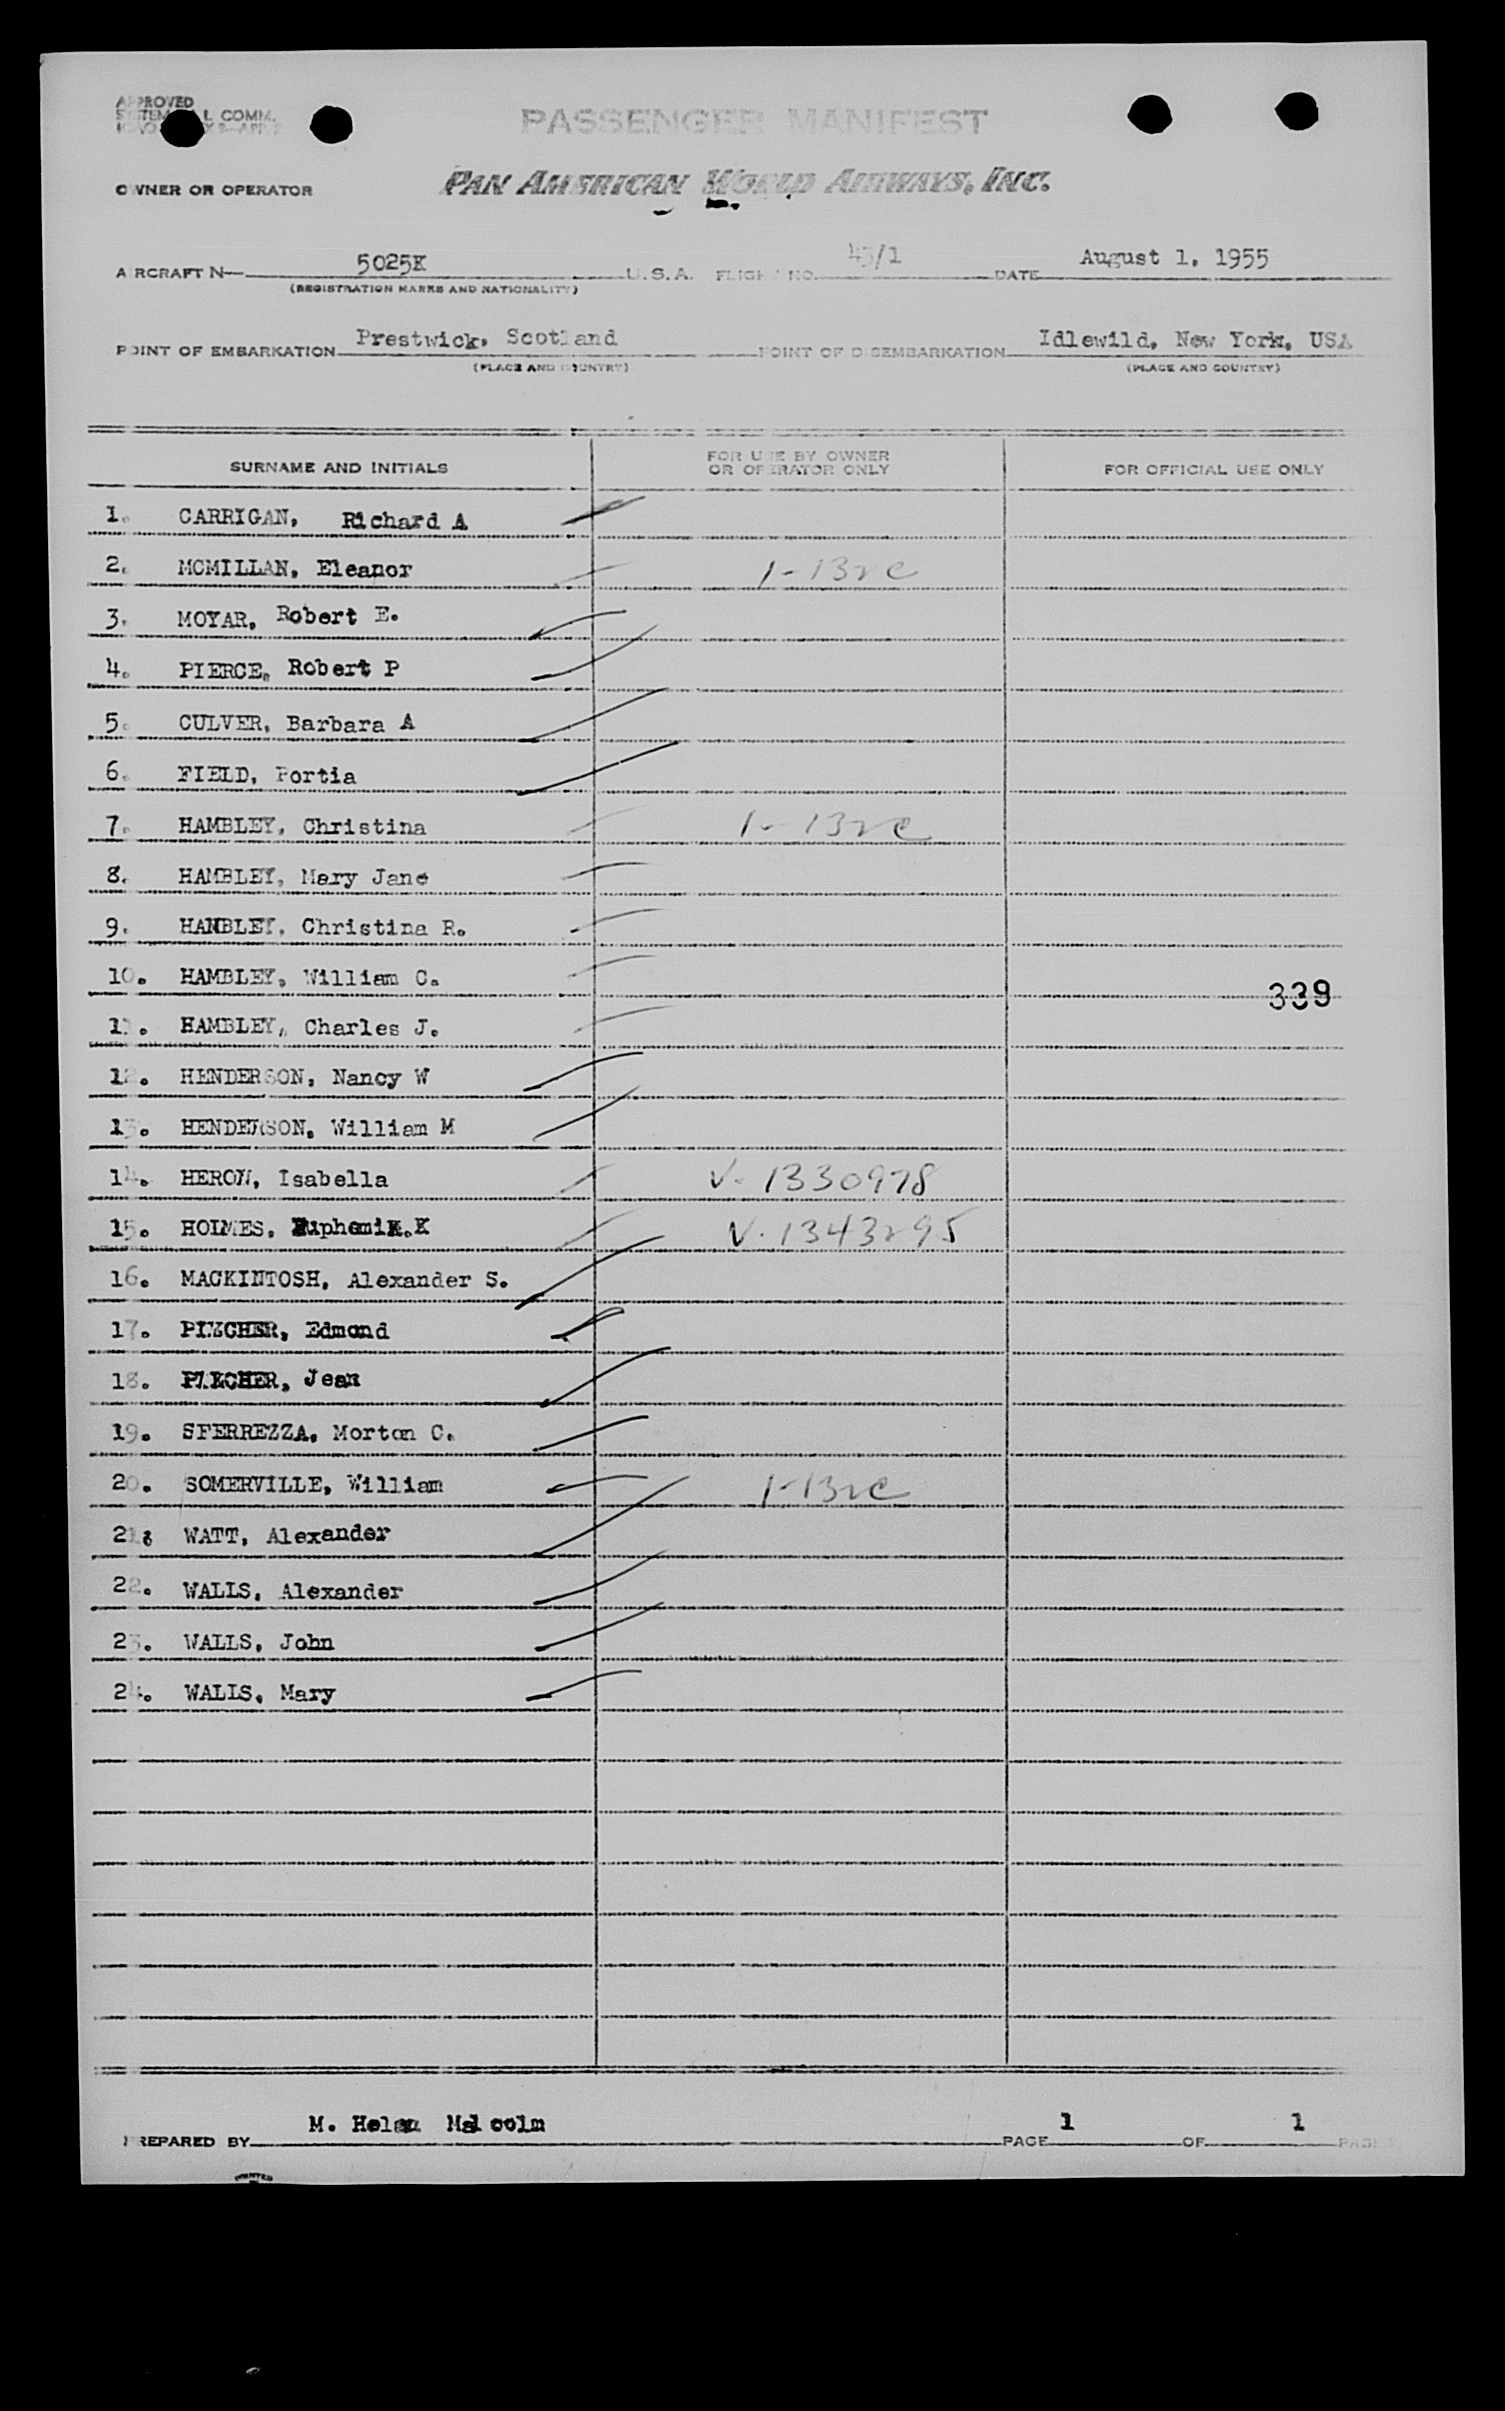 APPROVED
L COMM.
PASSENGER MANIFEST
OWNER OR OPERATOR PAN AMERICAN WORLD AIRWAYS, INC.
AIRCRAFT N— 5025K U.S.A. FLIGHT NO. 45/1 DATE August 1, 1955
(REGISTRATION MARKS AND NATIONALITY)
POINT OF EMBARKATION Prestwick, Scotland POINT OF DISEMBARKATION Idlewild, New York, USA
(PLACE AND COUNTRY) (PLACE AND COUNTRY)
SURNAME AND INITIALS FOR USE BY OWNER OR OPERATOR ONLY FOR OFFICIAL USE ONLY
1. CARRIGAN, Richard A
2. MCMILLAN, Eleanor
3. MOYAR, Robert E.
4. PIERCE, Robert P
5. CULVER, Barbara A
6. FIELD, Portia
7. HAMBLEY, Christina
8. HAMBLEY, Mary Jane
9. HAMBLEY, Christina R.
10. HAMBLEY, William C.
339
11. HAMBLEY, Charles J.
12. HENDERSON, Nancy W
13. HENDERSON, William M
14. HERON, Isabella V-1330978
15. HOLMES, K V-1343295
16. MACKINTOSH, Alexander S.
17. Edmond
18. Jean
19. SFERREZZA, Morton C.
20. SOMERVILLE, William
21. WATT, Alexander
22. WALLS, Alexander
23. WALLS, John
24. WALLS, Mary
PREPARED BY M. Helen Malcolm PAGE 1 OF 1 PAGES
PRINTED